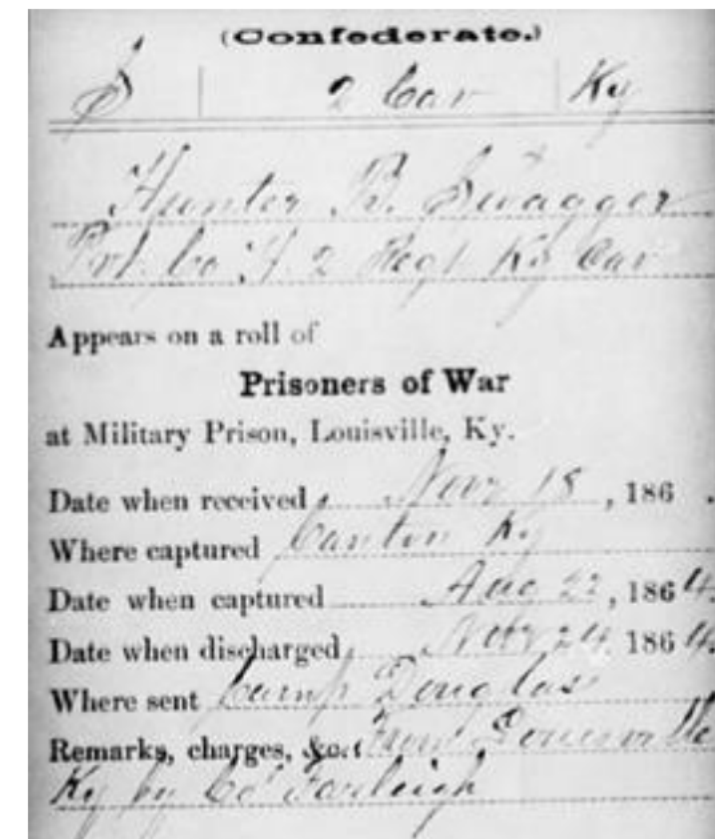 (Confederate.)
S 2 Cav Ky
Hunter B. Swagger
Prt. Co. H. 2 Regt Ky Cav
Appears on a roll of
Prisoners of War
at Military Prison, Louisville, Ky.
Date when received, Nov 18, 186 .
Where captured Canton Ky
Date when captured Aug 22, 1864.
Date when discharged, Nov 24, 1864.
Where sent Camp Douglas
Remarks, charges, &c.: From Louisville
Ky by Col Farleigh